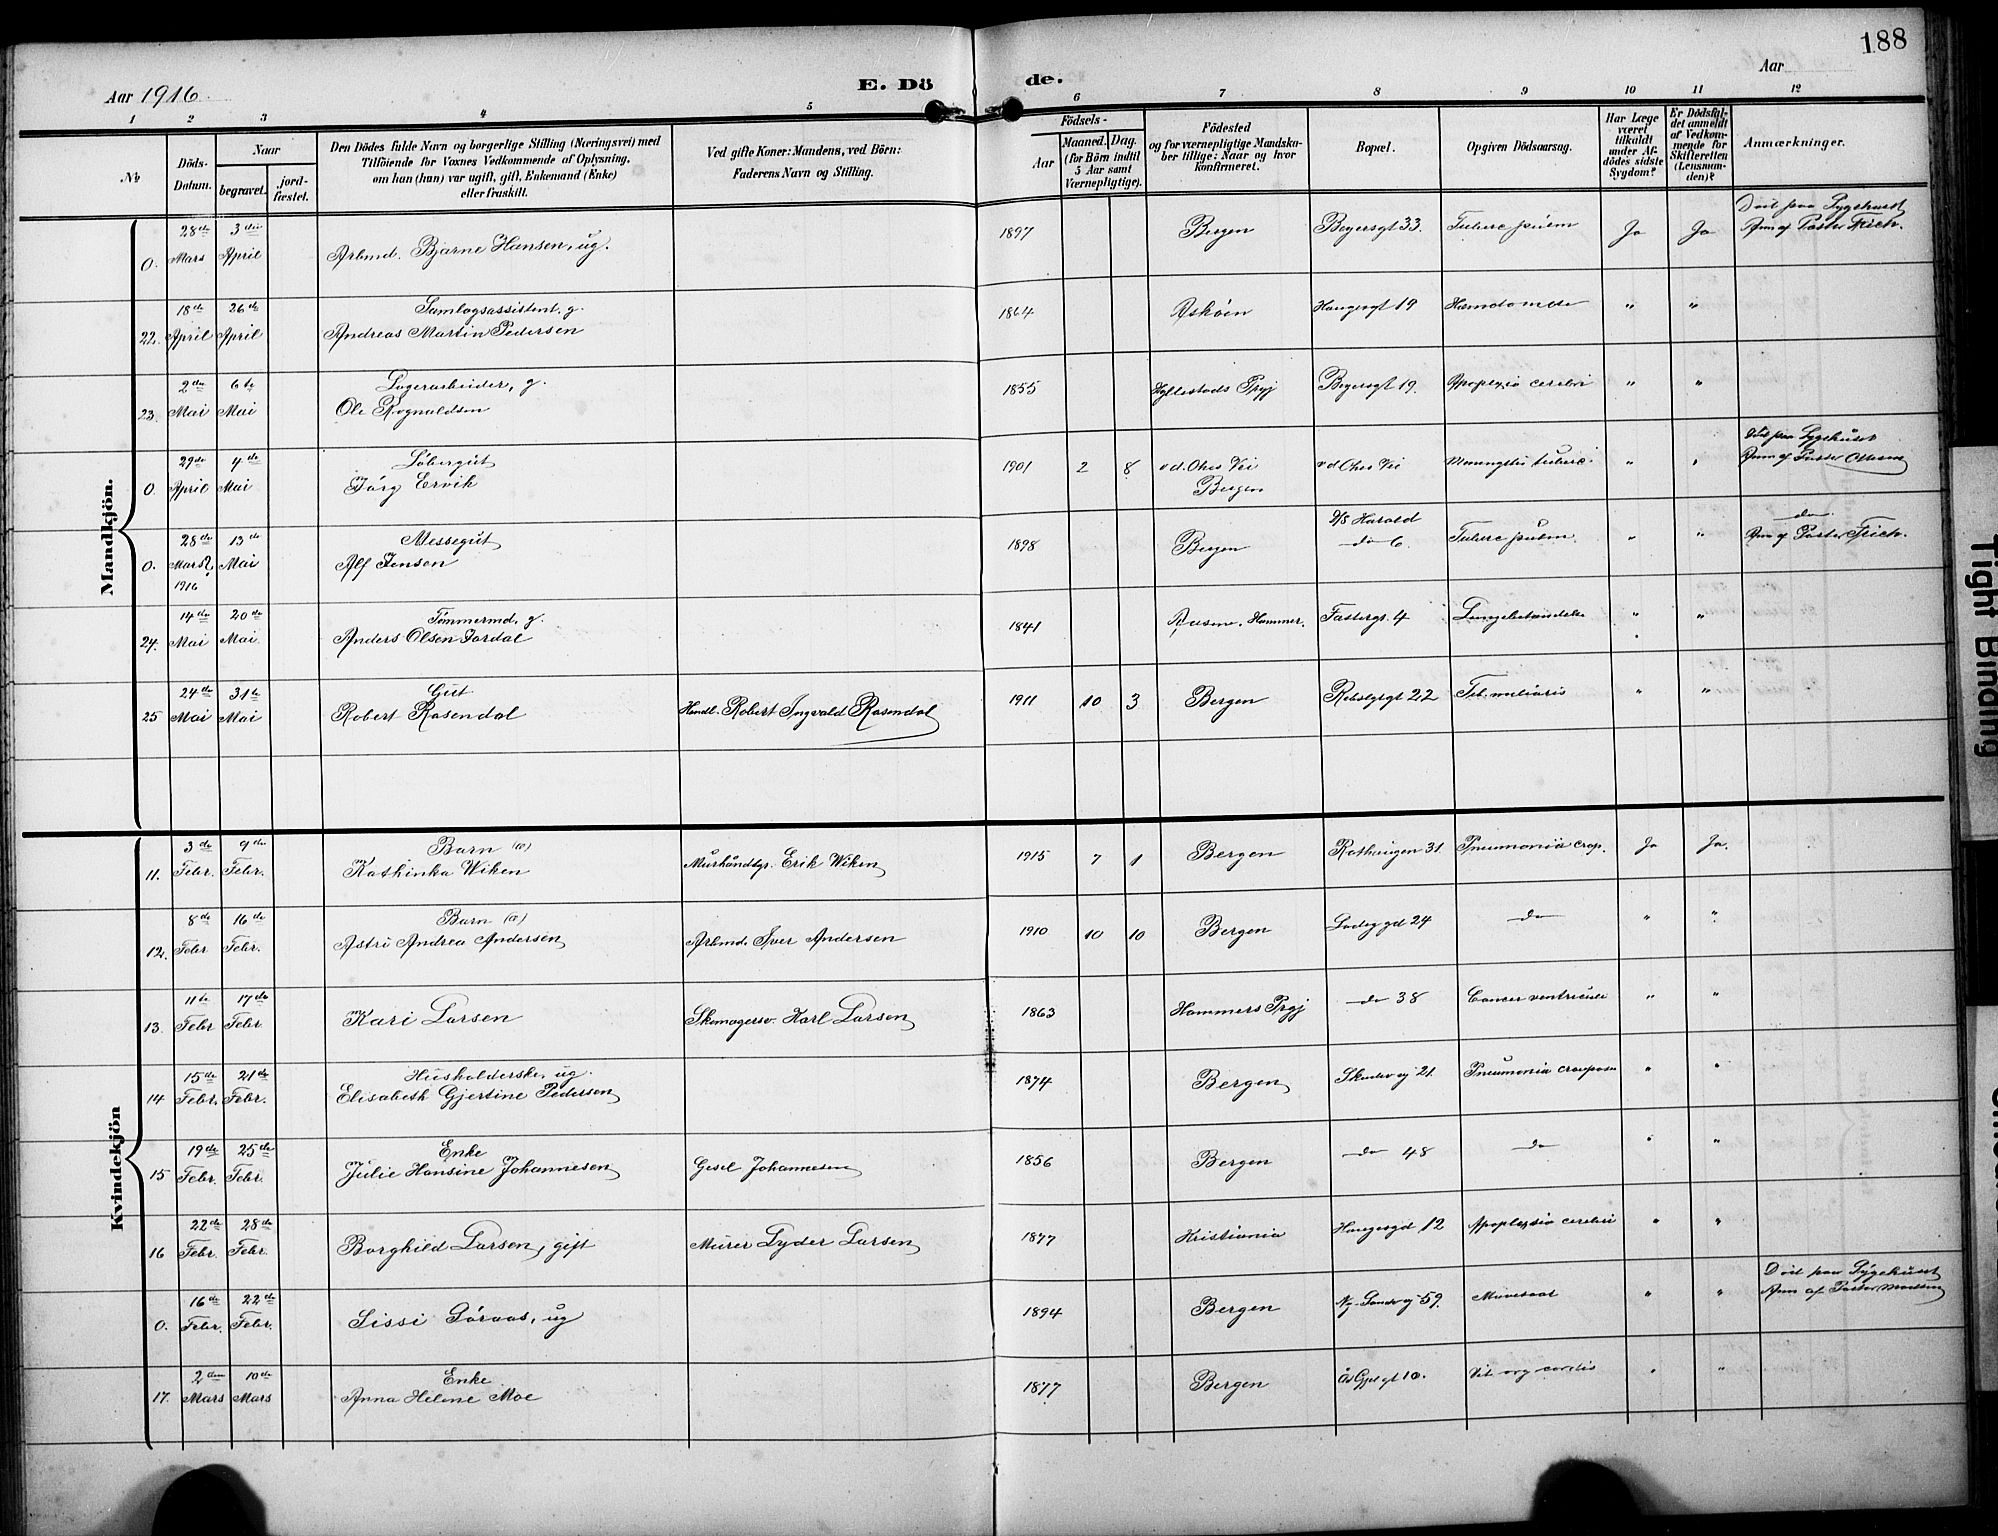 188
Aar 1916.
E. Döde.
Aar
1 2 3 4 5 6 7 8 9 10 11 12
No
Döds-Datum.
Naar
begravet.
jord-fæstet.
Den Dödes fulde Navn og borgerlige Stilling (Næringsvei) med
Tilföiende for Voxnes Vedkommende af Oplysning,
om han (hun) var ugift, gift, Enkemand (Enke)
eller fraskilt.
Ved gifte Koner: Mandens, ved Börn:
Faderens Navn og Stilling.
Födsels-
Aar
Maaned. Dag.
(for Börn indtil
5 Aar samt
Værnepligtige).
Födested
og for værnepligtige Mandska-
ber tillige: Naar og hvor
konfirmeret.
Bopæl.
Opgiven Dödsaarsag.
Har Læge
været
tilkaldt
under Af-
dödes sidste
Sygdom?
Er Dödsfal-
det anmeldt
af Vedkom-
mende for
Skifteretten
(Lensman-
den)?
Anmærkninger.
Mandkjön.
0. 28de Mars 3die April Arbmd. Bjarne Hansen, ug. 1897 Bergen Beyersgt 33. Tuberc pulm Ja Ja Död paa Sygehuset
Anm af Pastor Frich.
22. 18de April 26de April Samlagsassistent, g.
Andreas Martin Pedersen 1864 Askøen Haugesgt 19 " "
23. 2den Mai 6te Mai Lagerarbeider, g.
Ole Rognaldsen 1855 Hyllestads Prgj Beyersgt 19. Apoplexia cerebri " "
0. 29de April 4de Mai Løbergut
Jørg Ervik 1901 2 8 v d. Ohes Vei
Bergen v d Ohes Vei Meningitis tuberc. " " Död paa Sygehuset
Anm af Pastor
0. 28de Mars 1916 13de Mai Messegut
Alf Jensen 1898 Bergen D/S Harald
do 6. Tuberc pulm. " " do
Anm af Pastor Frich.
24. 14de Mai 20de Mai Tømmermd, g.
Anders Olsen Jordal 1841 Hammer. Fastergt. 4 Lungebetændelse " "
25 24de Mai 31te Mai Gut
Robert Rosendal Handl. Robert Ingvald Rosendal 1911 10 3 Bergen 22 Tub. miliaris " "
Kvindekjön
11. 3de Febr. 9de Febr. Barn (e)
Kathinka Wiken Murhåndtgr. Erik Wiken 1915 7 1 Bergen Rothaugen 31 Pneumonia crop. Ja Ja.
12. 8de Febr 16de Febr. Barn (e)
Astri Andrea Andersen Arbmd. Iver Andersen 1910 10 10 Bergen Ladeggd 24 do " "
13. 11te Febr 17de Febr. Kari Larsen Skomagersv. Karl Larsen 1863 Hammers Prgj do 38 Cancer ventriculi " "
14 15de Febr. 21de Febr. Husholderske, ug.
Elisabeth Gjertine Pedersen 1874 Bergen Skudevg 21. Pneumonia crouposa " "
15 19de Febr. 25de Febr. Enke
Julie Hansine Johannesen Gesel Johannesen 1856 Bergen do 48 do " "
16 22de Febr. 28de Febr. Borghild Larsen, gift Murer Lyder Larsen 1877 Kristiania Haugesgd 12 Apoplexia cerebri " "
0. 16de Febr. 22de Febr. Sissi Søraas, ug 1894 Bergen Ny-Sandvg 59. " " Död paa Sygehuset
Anm af Pastor
17. 2den Mars 10de Mars Enke
Anna Helene Moe 1877 Bergen 10. Vit. org cordis " "
Tight Binding